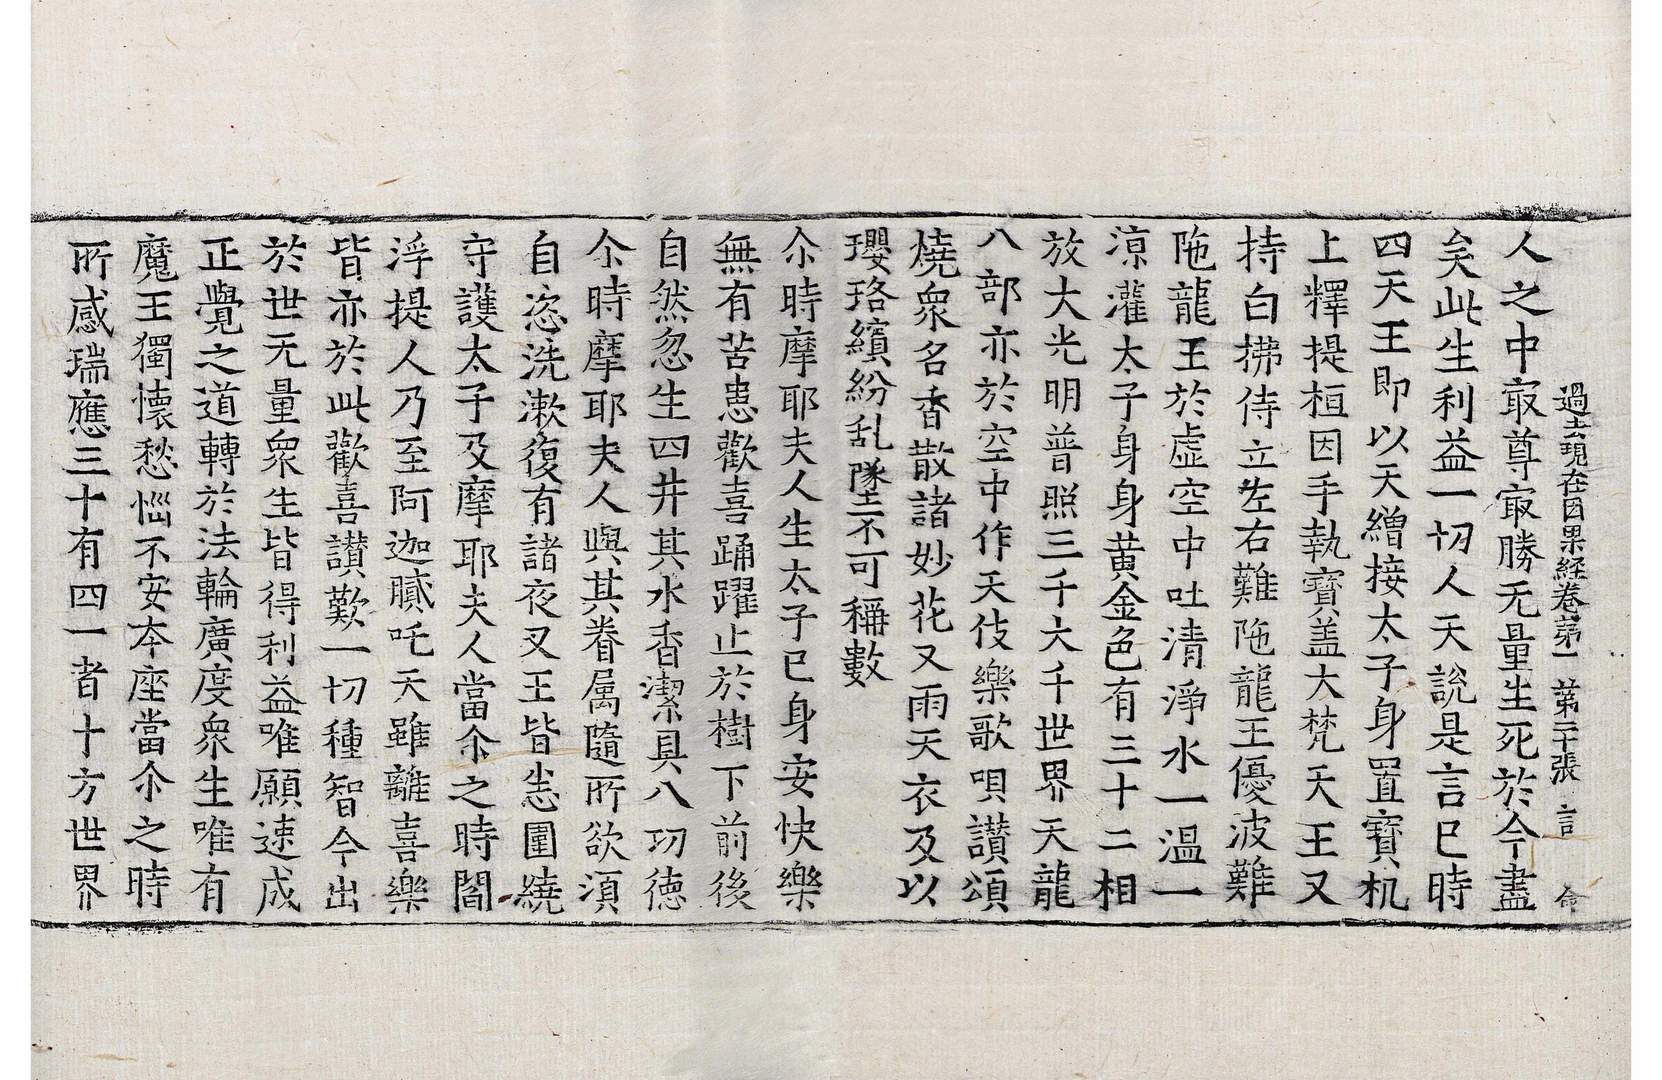 過去現在因果経卷第一 第二十張 言 命
人之中㝡尊㝡勝无量生死於今盡
矣此生利益一切人天說是言已時
四天王即以天繒接太子身置寳机
上釋提桓因手執寳盖大梵天王又
持白拂侍立左右難陁龍王優波難
陁龍王於虛空中吐清淨水一温一
涼灌太子身身黄金色有三十二相
放大光明普照三千大千世界天龍
八部亦於空中作天伎樂歌唄讃頌
燒衆名香散諸妙花又雨天衣及以
瓔珞繽紛乱墜不可稱數
尒時摩耶夫人生太子已身安快樂
無有苦患歡喜踊躍止於樹下前後
自然忽生四井其水香潔具八功德
尒時摩耶夫人與其眷属隨所欲湏
自恣洗漱復有諸夜叉王皆悉圍繞
守護太子及摩耶夫人當尒之時閻
浮提人乃至阿迦膩吒天雖離喜樂
皆亦於此歡喜讃歎一切種智今出
於世无量衆生皆得利益唯願速成
正覺之道轉於法輪廣度衆生唯有
魔王獨懷愁惱不安本座當尒之時
所感瑞應三十有四一者十方世界